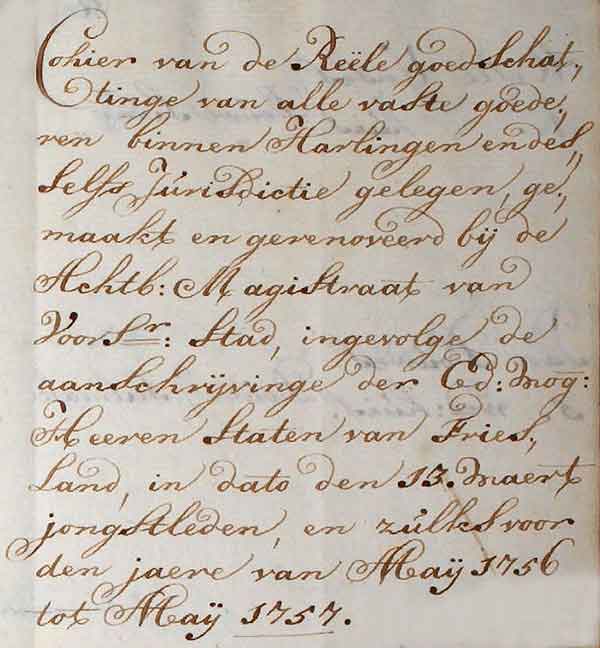 Cohier van de Reële goedschat„
tinge van alle vaste goede„
ren binnen Harlingen en des„
selfs Jurisdictie gelegen, ge„
maakt en gerenoveerd bij de
Achtb: Magistraat van
Voorsr: Stad, ingevolge de
aanschrijvinge der Ed: Mog:
Heeren Staten van Fries„
Land, in dato den 13. Maert
jongstleden, en zulks voor
den jaere van Maÿ 1756
tot Maÿ 1757.